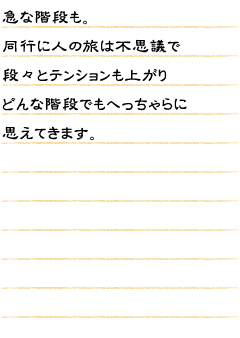 急な階段も。
同行に人の旅は不思議で
段々とテンションも上がり
どんな階段でもへっちゃらに
思えてきます。